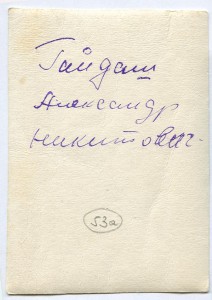 Гайдаш
Александр
Никитович.
53а